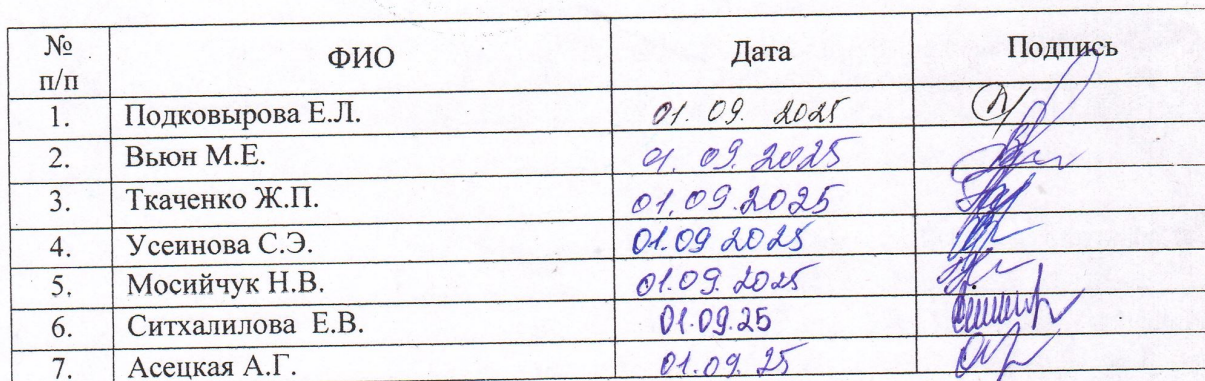 № п/п ФИО Дата Подпись
1. Подковырова Е.Л. 01.09.2025
2. Вьюн М.Е. 01.09.2025
3. Ткаченко Ж.П. 01.09.2025
4. Усеинова С.Э. 01.09.2025
5. Мосийчук Н.В. 01.09.2025
6. Ситхалилова Е.В. 01.09.25
7. Асецкая А.Г. 01.09.25